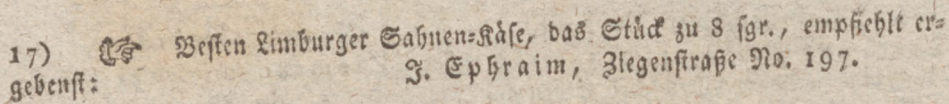 17) ☞ Beſten Limburger Sahnen-Käſe, das Stück zu 8 ſgr., empfiehlt er-
gebenſt: J. Ephraim, Ziegenſtraße No. 197.